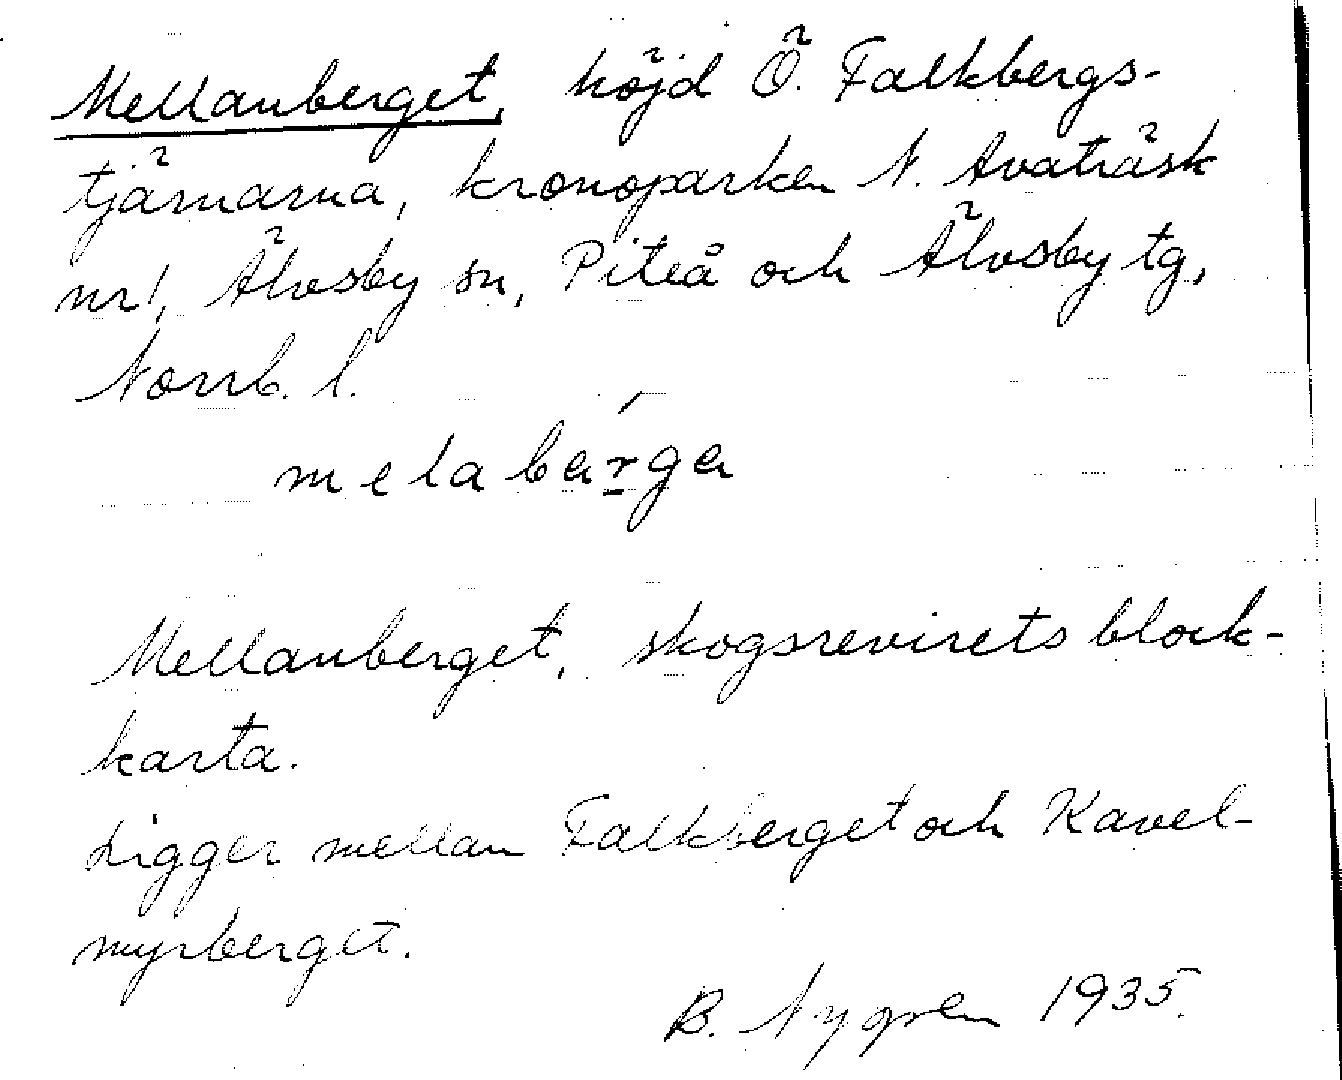 Mellanberget, höjd Ö. Falkbergs-
tjärnarna, kronoparken N. Avaträsk
nr 1, Älvsby sn, Piteå och Älvsby tg,
Norrb. l.
melabærga
Mellanberget, skogsrevirets block-
karta.
Ligger mellan Falkberget och Kavel-
myrberget.
B. Nygren 1935.